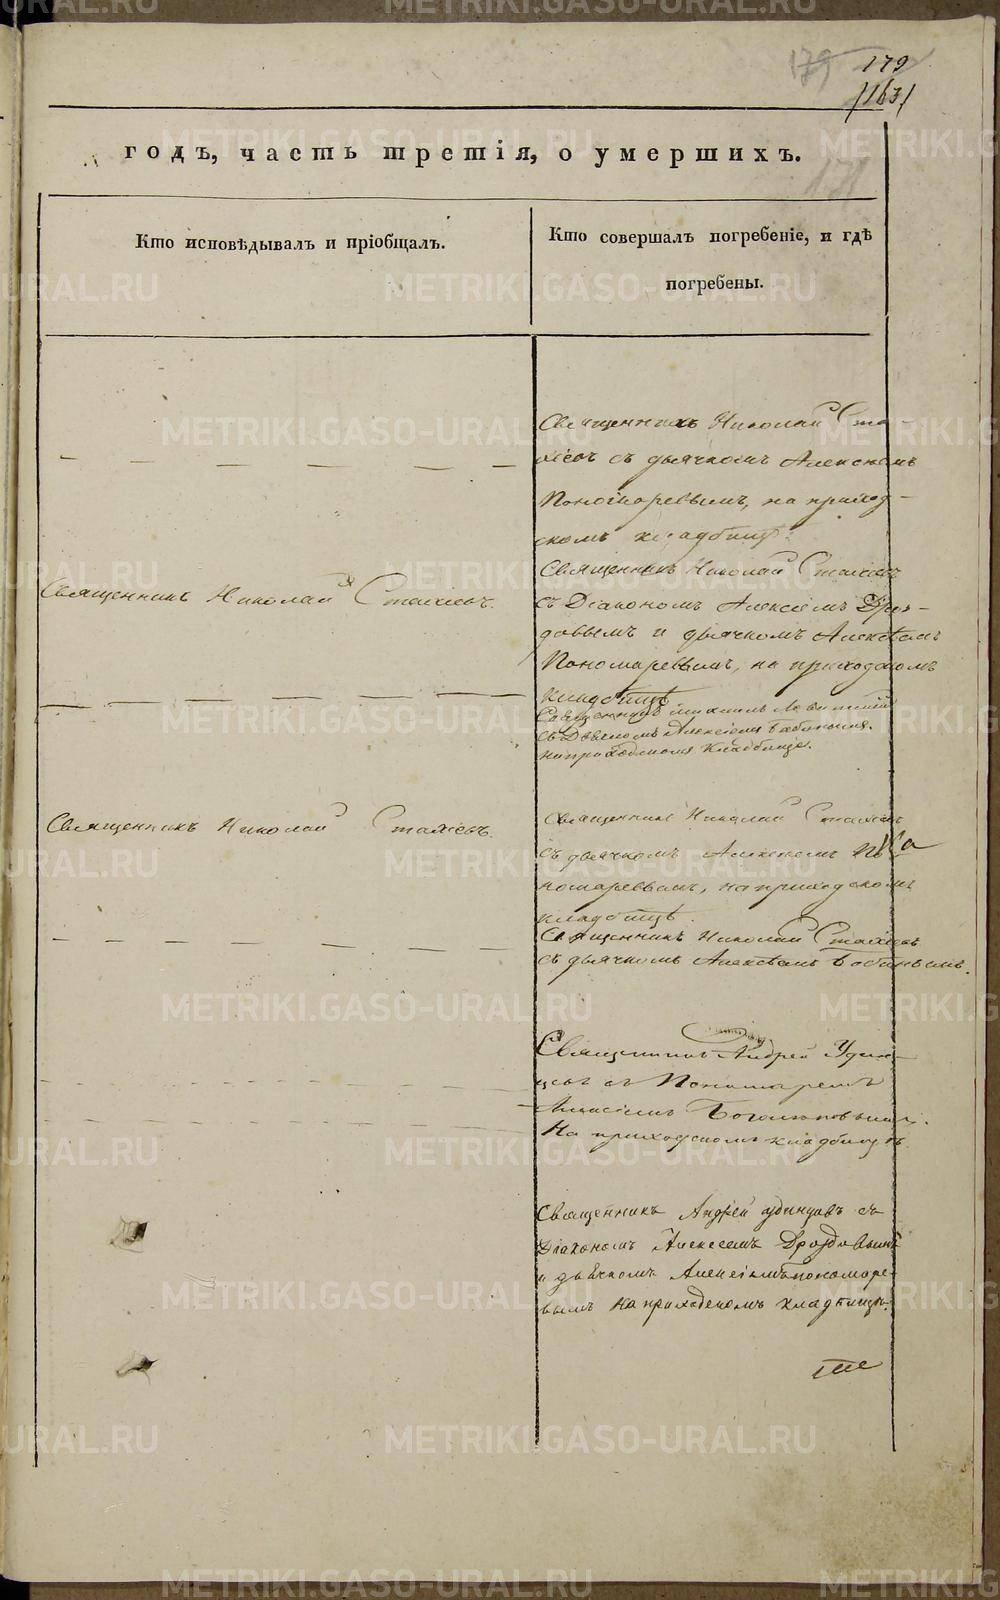 179
179
/163/
171
годъ, часть третія, о умершихъ.
Кто исповѣдывалъ и пріобщалъ.
Кто совершалъ погребеніе, и гдѣ
погребены.
Священникъ Николай Ста-
хіевъ съ дьячкомъ Алексѣемъ
Пономаревымъ, на приход-
скомъ кладбищѣ.
Священникъ Николай Стахіевъ.
Священникъ Николай Стахіевъ
съ Діакономъ Алексіемъ Дроз-
довымъ и дьячкомъ Алексѣемъ
Пономаревымъ, на приходскомъ
кладбищѣ
Священникъ Михаилъ
съ Дьячкомъ Алексіемъ Бабинымъ.
на приходскомъ кладбище.
Священникъ Николай Стахіевъ.
Священникъ Николай Стахіевъ
съ дьячкомъ Алексѣемъ По
номаревымъ, на приходскомъ
кладбищѣ.
Священникъ Николай Стахіевъ
съ дьячкомъ Алексѣемъ Бабинымъ.
Священникъ Андрей Удин-
цевъ съ Пономаремъ
Алексіемъ
На приходскомъ кладбищѣ.
Священникъ Андрей Удинцовъ съ
Діакономъ Алексеемъ Дроздовымъ
и дьячкомъ Алексіемъ Пономаре-
вымъ на приходскомъ кладбище.